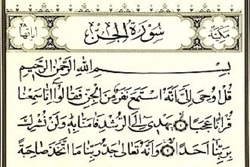 مكية سورة الجن آياتها ٢٨
بسم الله الرحمن الرحيم
قل أوحي إلي أنه استمع نفر من الجن فقالوا إنا سمعنا
قرآنا عجبا يهدي إلى الرشد فآمنا به ولن نشرك
بربنا أحدا وأنه تعالى جد ربنا ما اتخذ صاحبة